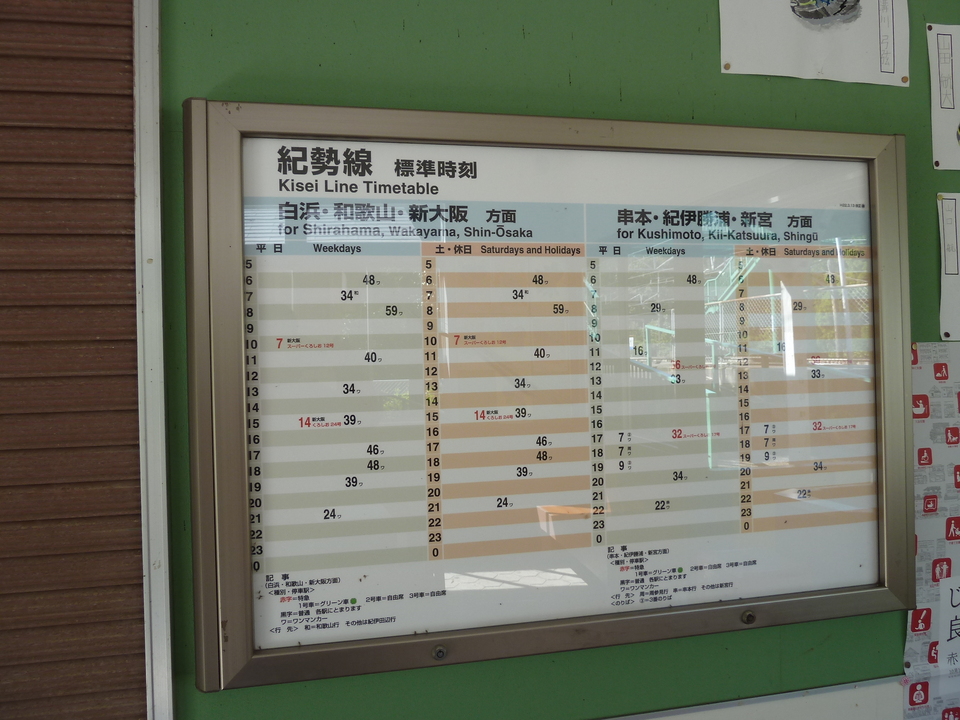 紀勢線 標準時刻
Kisei Line Timetable
白浜・和歌山・新大阪 方面
for Shirahama, Wakayama, Shin-Ōsaka
平日 Weekdays
5
6 48ワ
7 34和
8 59ワ
9
10 7 新大阪 スーパーくろしお 12号
11 40ワ
12
13 34ワ
14
15 14 新大阪 くろしお 24号 39ワ
16
17 46ワ
18 48ワ
19 39ワ
20
21 24ワ
22
23
0
土・休日 Saturdays and Holidays
5
6 48ワ
7 34和
8 59ワ
9
10 7 新大阪 スーパーくろしお 12号
11 40ワ
12
13 34ワ
14
15 14 新大阪 くろしお 24号 39ワ
16
17 46ワ
18 48ワ
19 39ワ
20
21 24ワ
22
23
0
串本・紀伊勝浦・新宮 方面
for Kushimoto, Kii-Katsuura, Shingū
平日 Weekdays
5
6 48ワ
7
8 29ワ
9
10
11 16
12
13 33ワ
14
15
16
17 7 32 スーパーくろしお 17号
18 7
19 9
20 34ワ
21
22 22
23
0
土・休日 Saturdays and Holidays
5
6 48
7
8 29ワ
9
10
11 16
12
13 33ワ
14
15
16
17 7 32 スーパーくろしお 17号
18 7
19 9
20 34ワ
21
22 22
23
0
記 事
(白浜・和歌山・新大阪方面)
<種別・停車駅>
赤字=特急
1号車=グリーン車 2号車=自由席 3号車=自由席
黒字=普通 各駅にとまります
ワ=ワンマンカー
<行 先> 和=和歌山行 その他は紀伊田辺行
記 事
(串本・紀伊勝浦・新宮方面)
<種別・停車駅>
赤字=特急
1号車=グリーン車 2号車=自由席 3号車=自由席
黒字=普通 各駅にとまります
ワ=ワンマンカー
<行 先> 周=周参見行 串=串本行 その他は新宮行
<のりば> ③=3番のりば
じ
良
赤